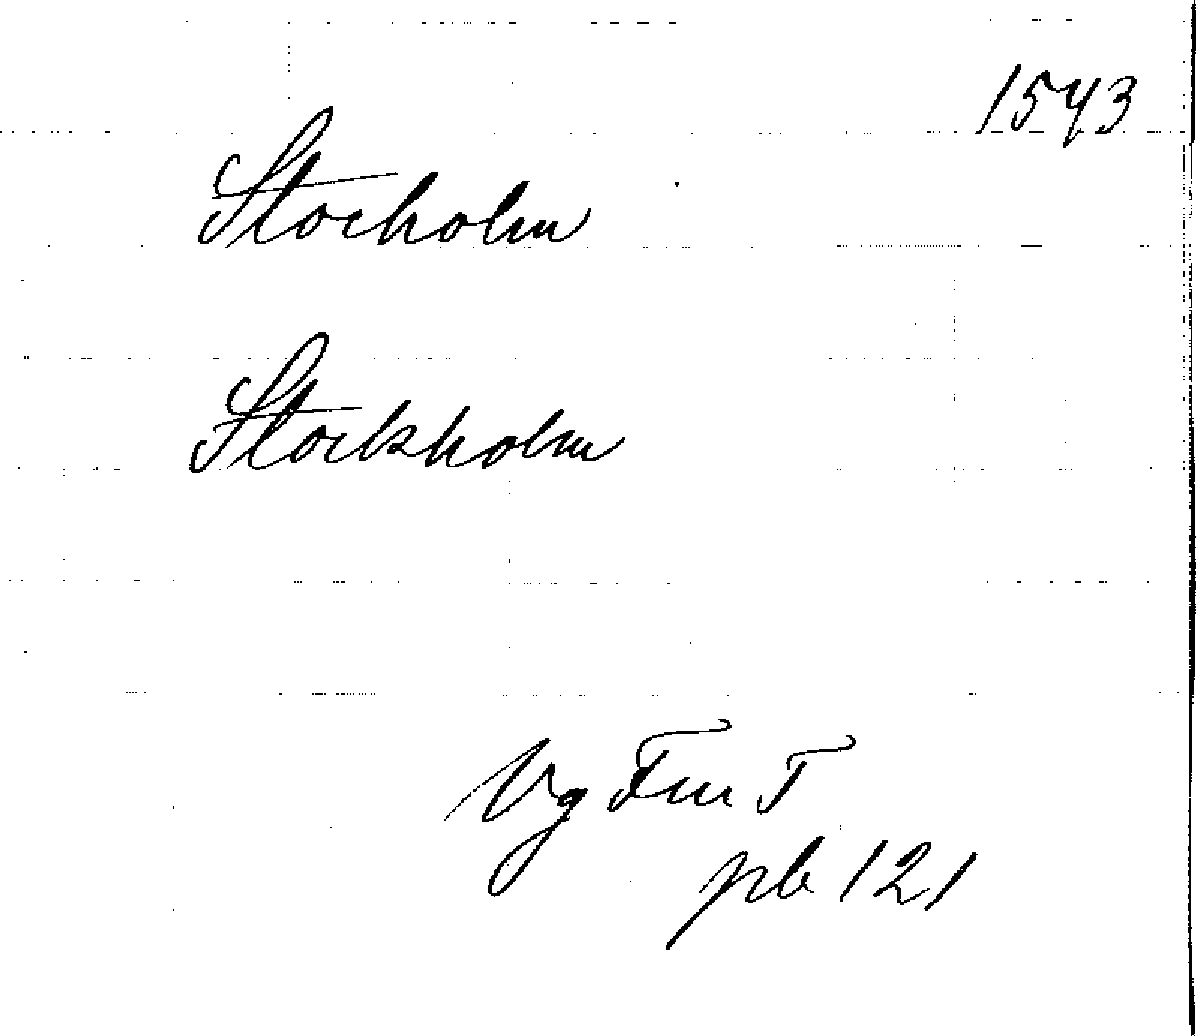 1543
Stocholm
Stockholm
Vg Fur F
pb 121